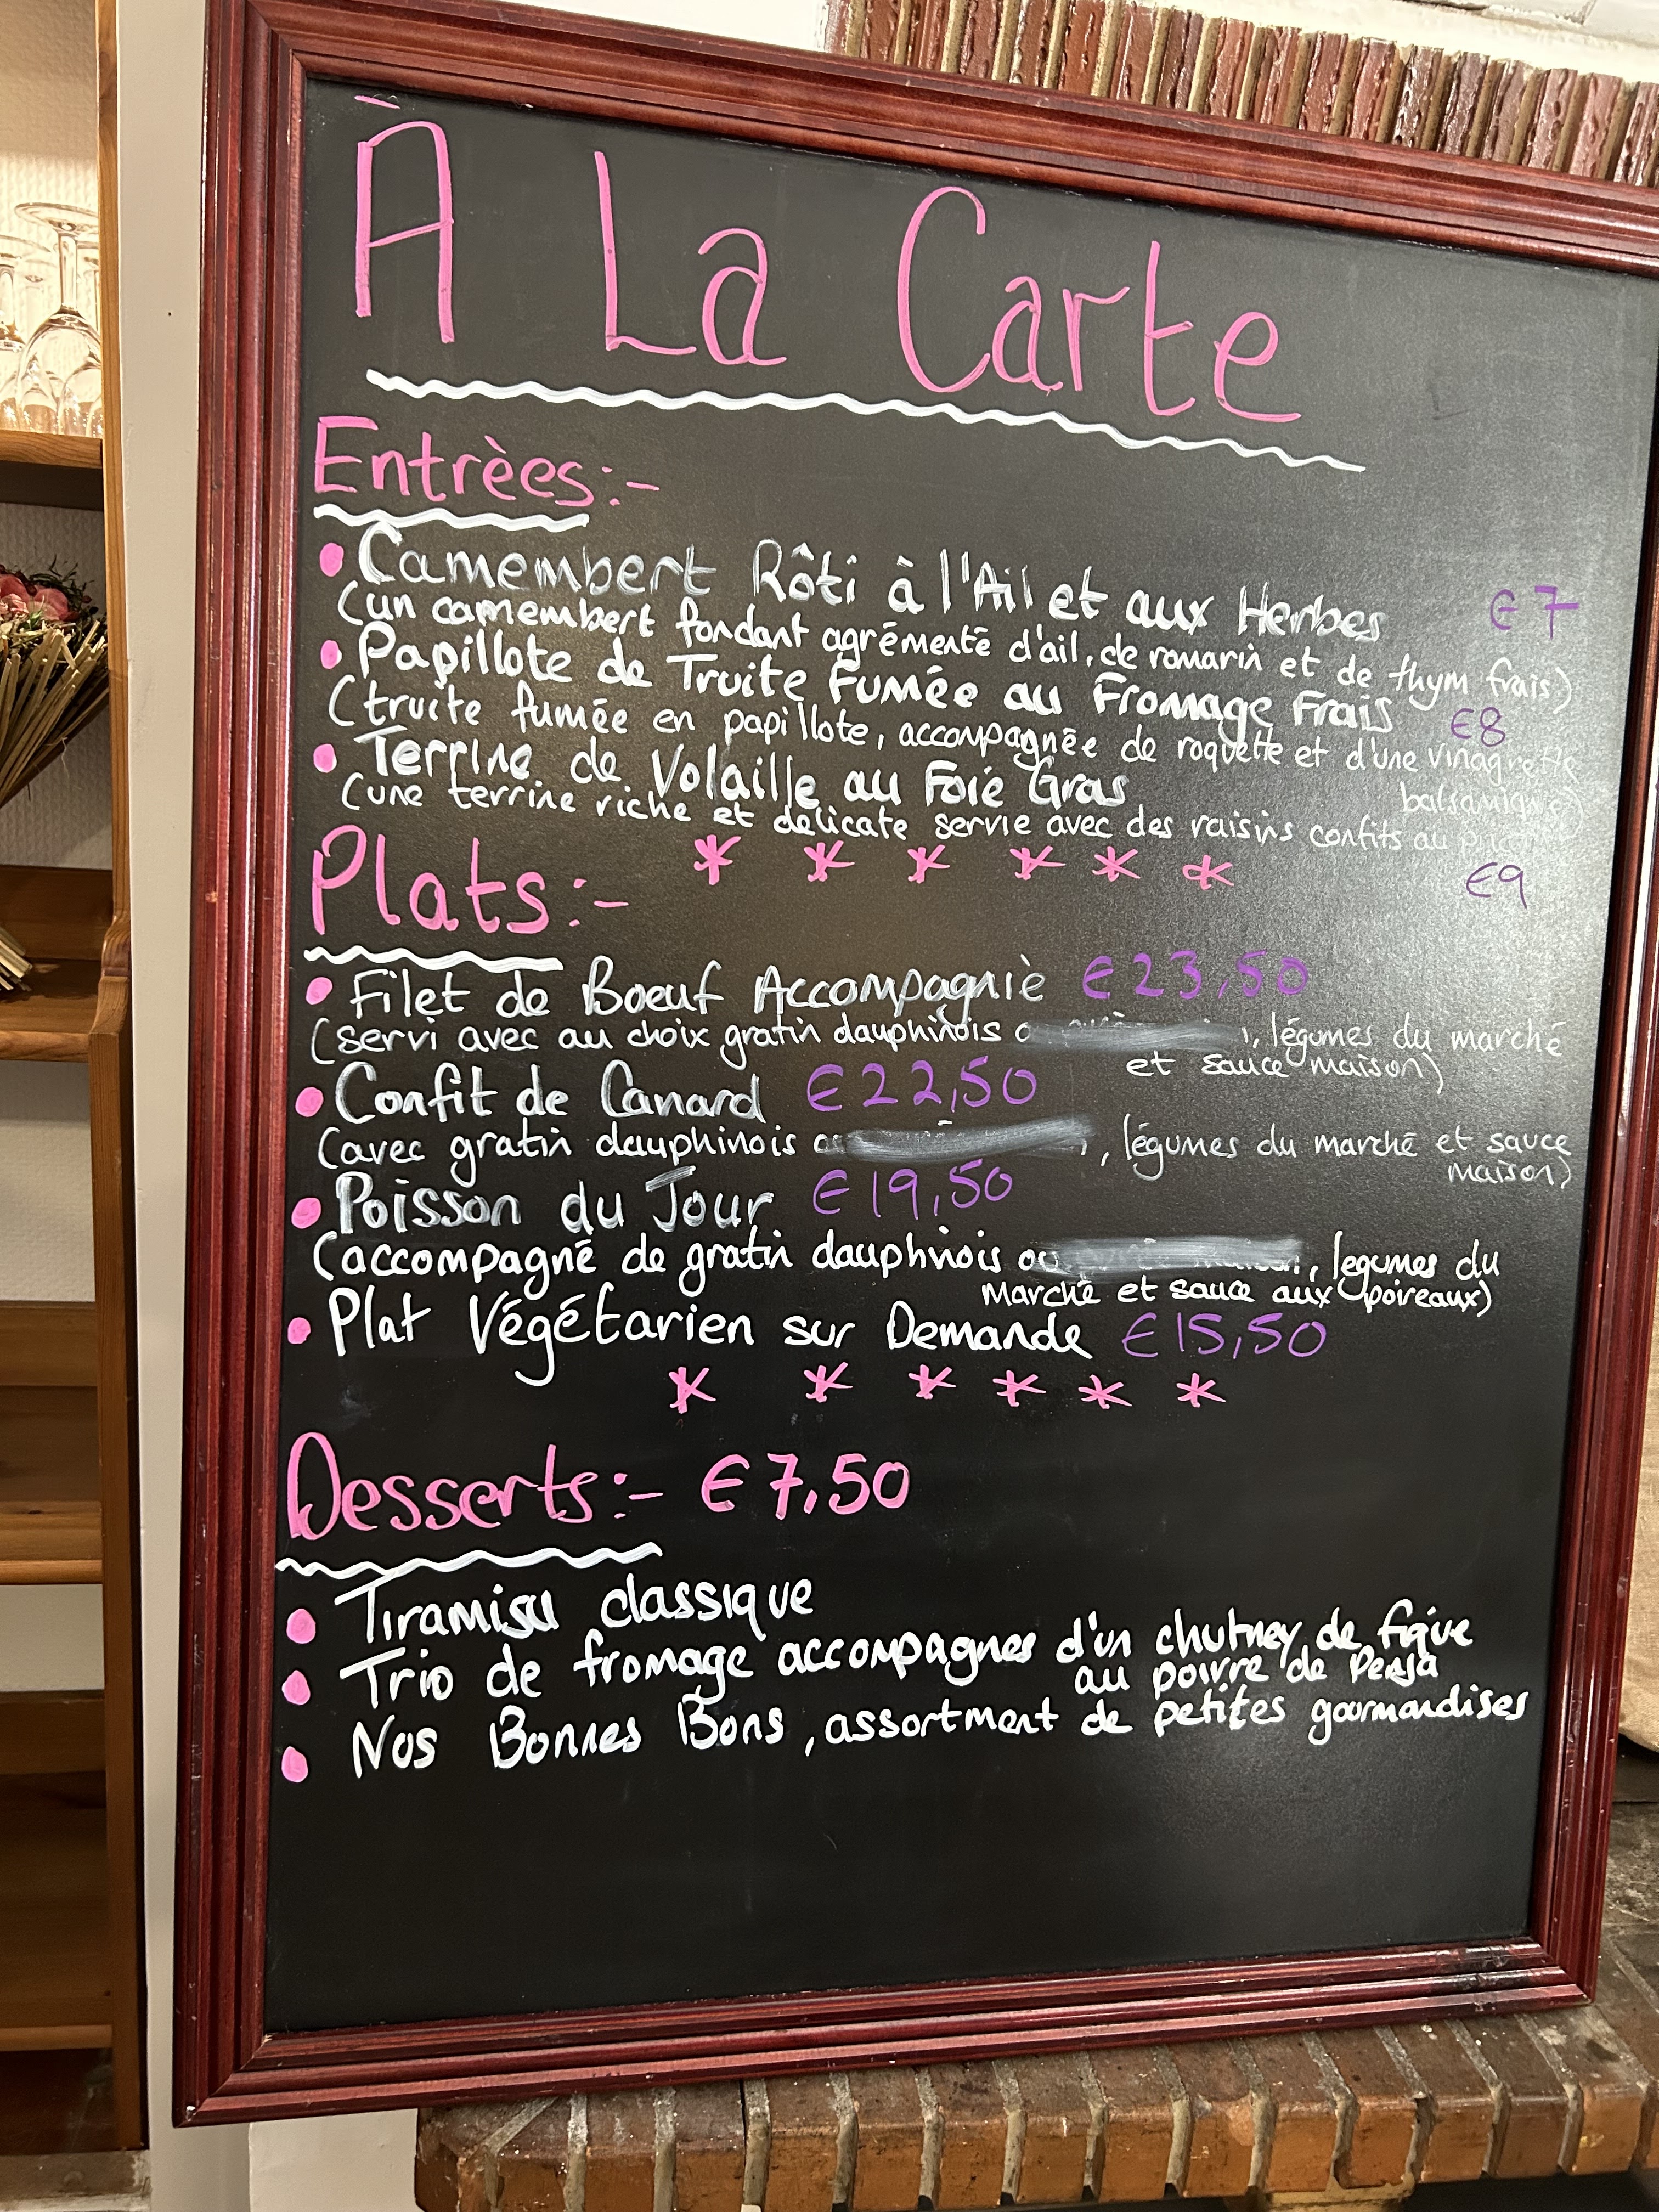 À La Carte
Entrèes:-
• Camembert Rôti à l'Ail et aux Herbes €7
(un camembert fondant agrémenté d'ail, de romarin et de thym frais)
• Papillote de Truite Fumée au Fromage Frais €8
(truite fumée en papillote, accompagnée de roquette et d'une vinagrette
balsamique)
• Terrine de Volaille au Foie Gras
(une terrine riche et délicate servie avec des raisins confits au
* * * * * *
€9
Plats:-
• Filet de Boeuf Accompagniè €23,50
(servi avec au choix gratin dauphinois , légumes du marché
et sauce maison)
• Confit de Canard €22,50
(avec gratin dauphinois , légumes du marché et sauce
maison)
• Poisson du Jour €19,50
(accompagné de gratin dauphinois ou , legumes du
Marché et sauce aux poireaux)
• Plat Végétarien sur Demande €15,50
* * * * * *
Desserts:- €7,50
• Tiramisu classique
• Trio de fromage accompagnes d'un chutney de figue
au poivre de Penja
• Nos Bonnes Bons, assortment de petites gourmandises